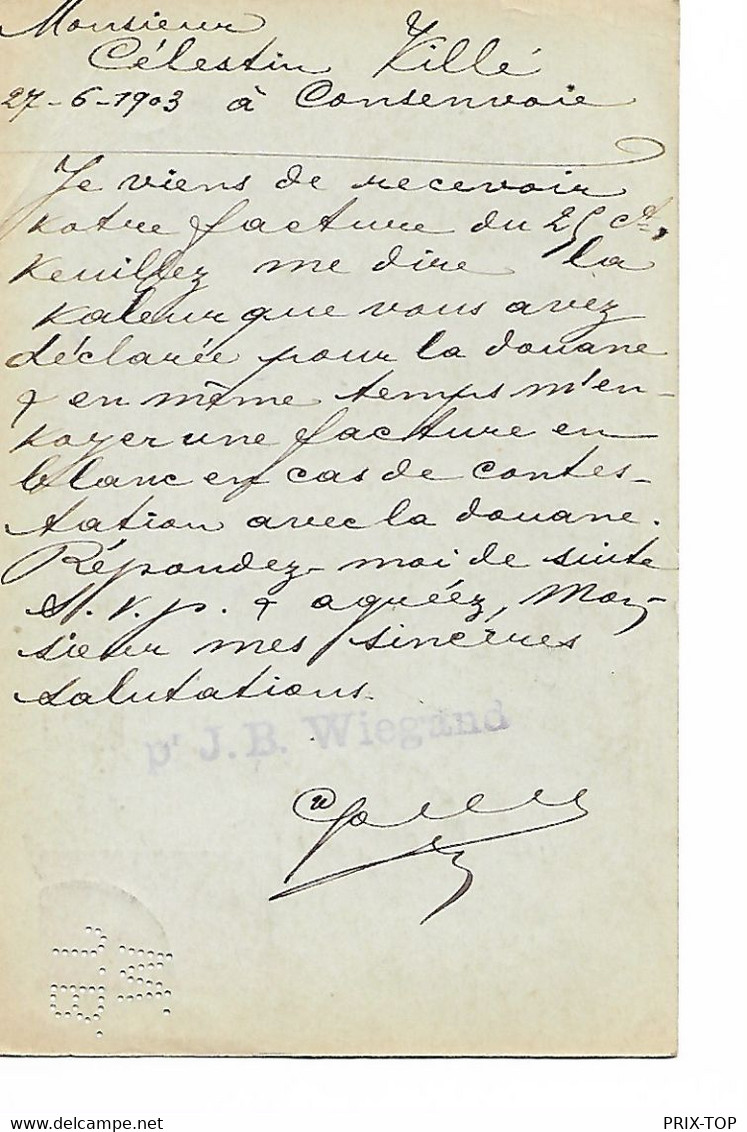 Monsieur
Célestin Villé
27-6-1903 à Consenvoie
Je viens de recevoir
votre facture du 25 ct,
veuillez me dire la
valeur que vous avez
déclarée pour la douane
& en même temps m'en-
voyer une facture en
blanc en cas de contes-
tation avec la douane.
Répondez-moi de suite
S.v.p. & agréez, Mon-
sieur mes sincères
salutations.
pr J.B. Wiegand
J.B.
W.
www.delcampe.net
PRIX-TOP